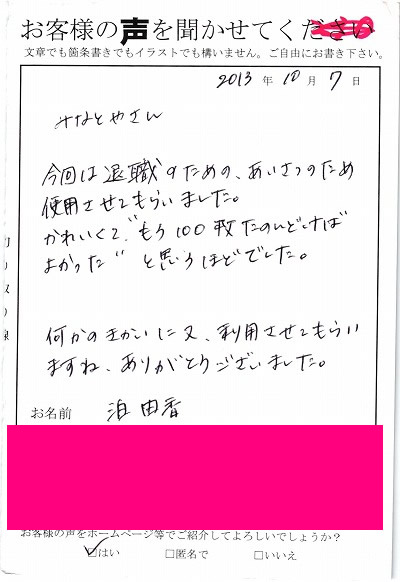 お客様の声を聞かせてください
文章でも箇条書きでもイラストでも構いません。ご自由にお書き下さい。
2013 年 10 月 7 日
みなとやさん
今回は退職のための、あいさつのため
使用させてもらいました。
かわいくて、"もう100枚たのんどけば
よかった" と思うほどでした。
何かのきかいに又、利用させてもらい
ますね、ありがとうございました。
お名前 浜 由香
お客様の声をホームページ等でご紹介してよろしいでしょうか？
☑はい □匿名で □いいえ